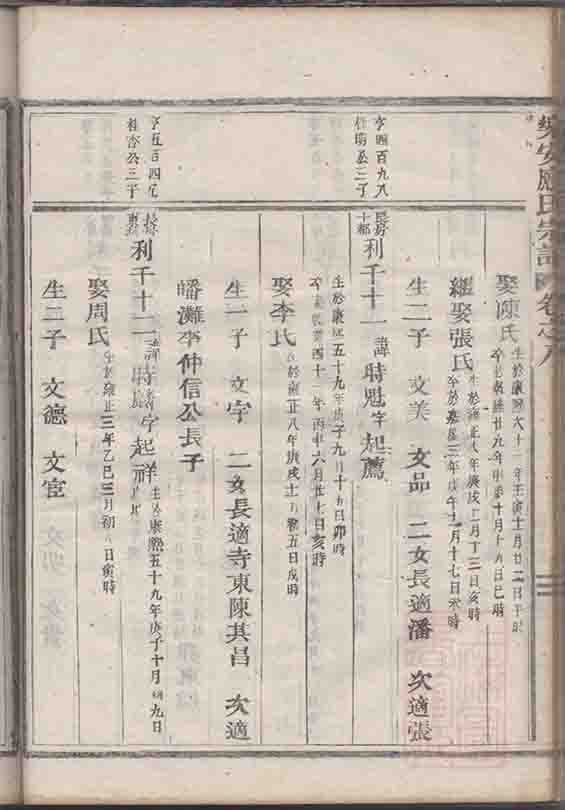 應氏宗譜 卷之八
娶陳氏 生於康熙六十一年壬寅十月廿二日午時
卒於乾隆廿九年甲申十月十六日巳時
繼娶張氏 生於雍正八年庚戌二月十三日亥時
卒於嘉慶三年戊午 月十七日未時
生二子 文美 文品 二女長適潘 次適張
亨四百九
公三子
長房
十都
利千十一 諱時魁字起薦
生於康熙五十九年庚子九月十五日卯時
卒 四十一年丙申六月廿七日亥時
娶李氏 生於雍正八年庚戌十 月初五日戌時
生一子 文宇 二女長適寺東陳其昌 次適
皤灘李仲信公長子
亨五百四
桂 公三子
利千十二 諱時 字起祥 生於康熙五十九年庚子十月初九日
時
娶周氏 生於雍正三年乙巳三月初 日寅時
生二子 文德 文宦